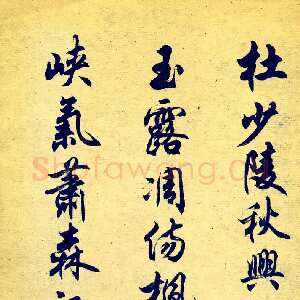 杜少陵秋興
玉露凋傷楓
峽氣蕭森江
Shufawang.cn